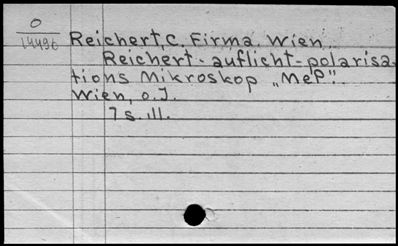 O
14496
Reichert, C. Firma. Wien.
Reichert-auflicht-polarisa-
tions Mikroskop „MeP".
Wien, o.J.
7 s. ill.